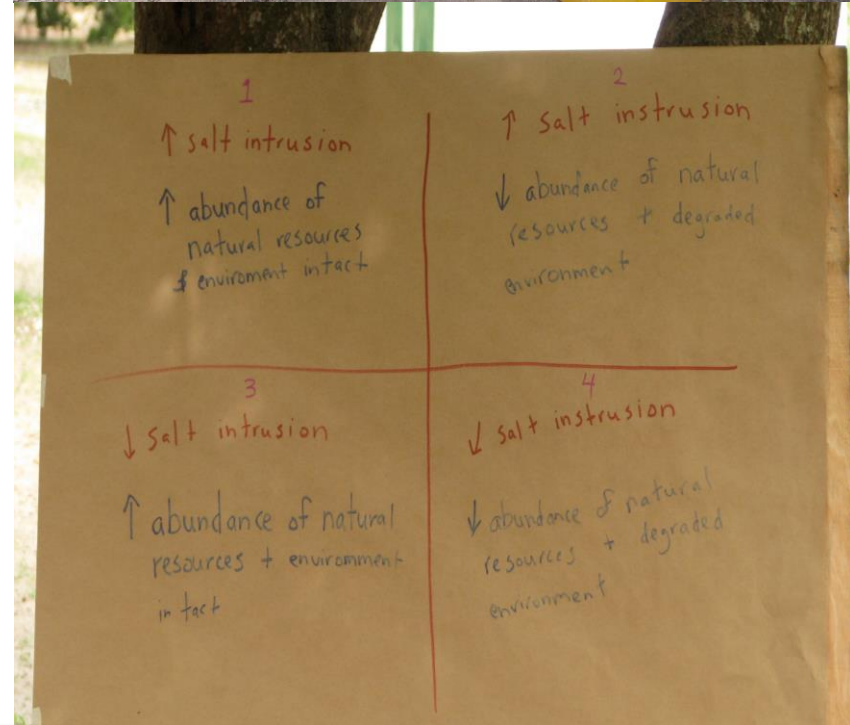 1
↑ salt intrusion
↑ abundance of
natural resources
& enviroment intact
2
↑ salt instrusion
↓ abundance of natural
resources + degraded
environment
3
↓ salt intrusion
↑ abundance of natural
resources + enviromment
in tact
4
↓ salt instrusion
↓ abundance of natural
resources + degraded
environment